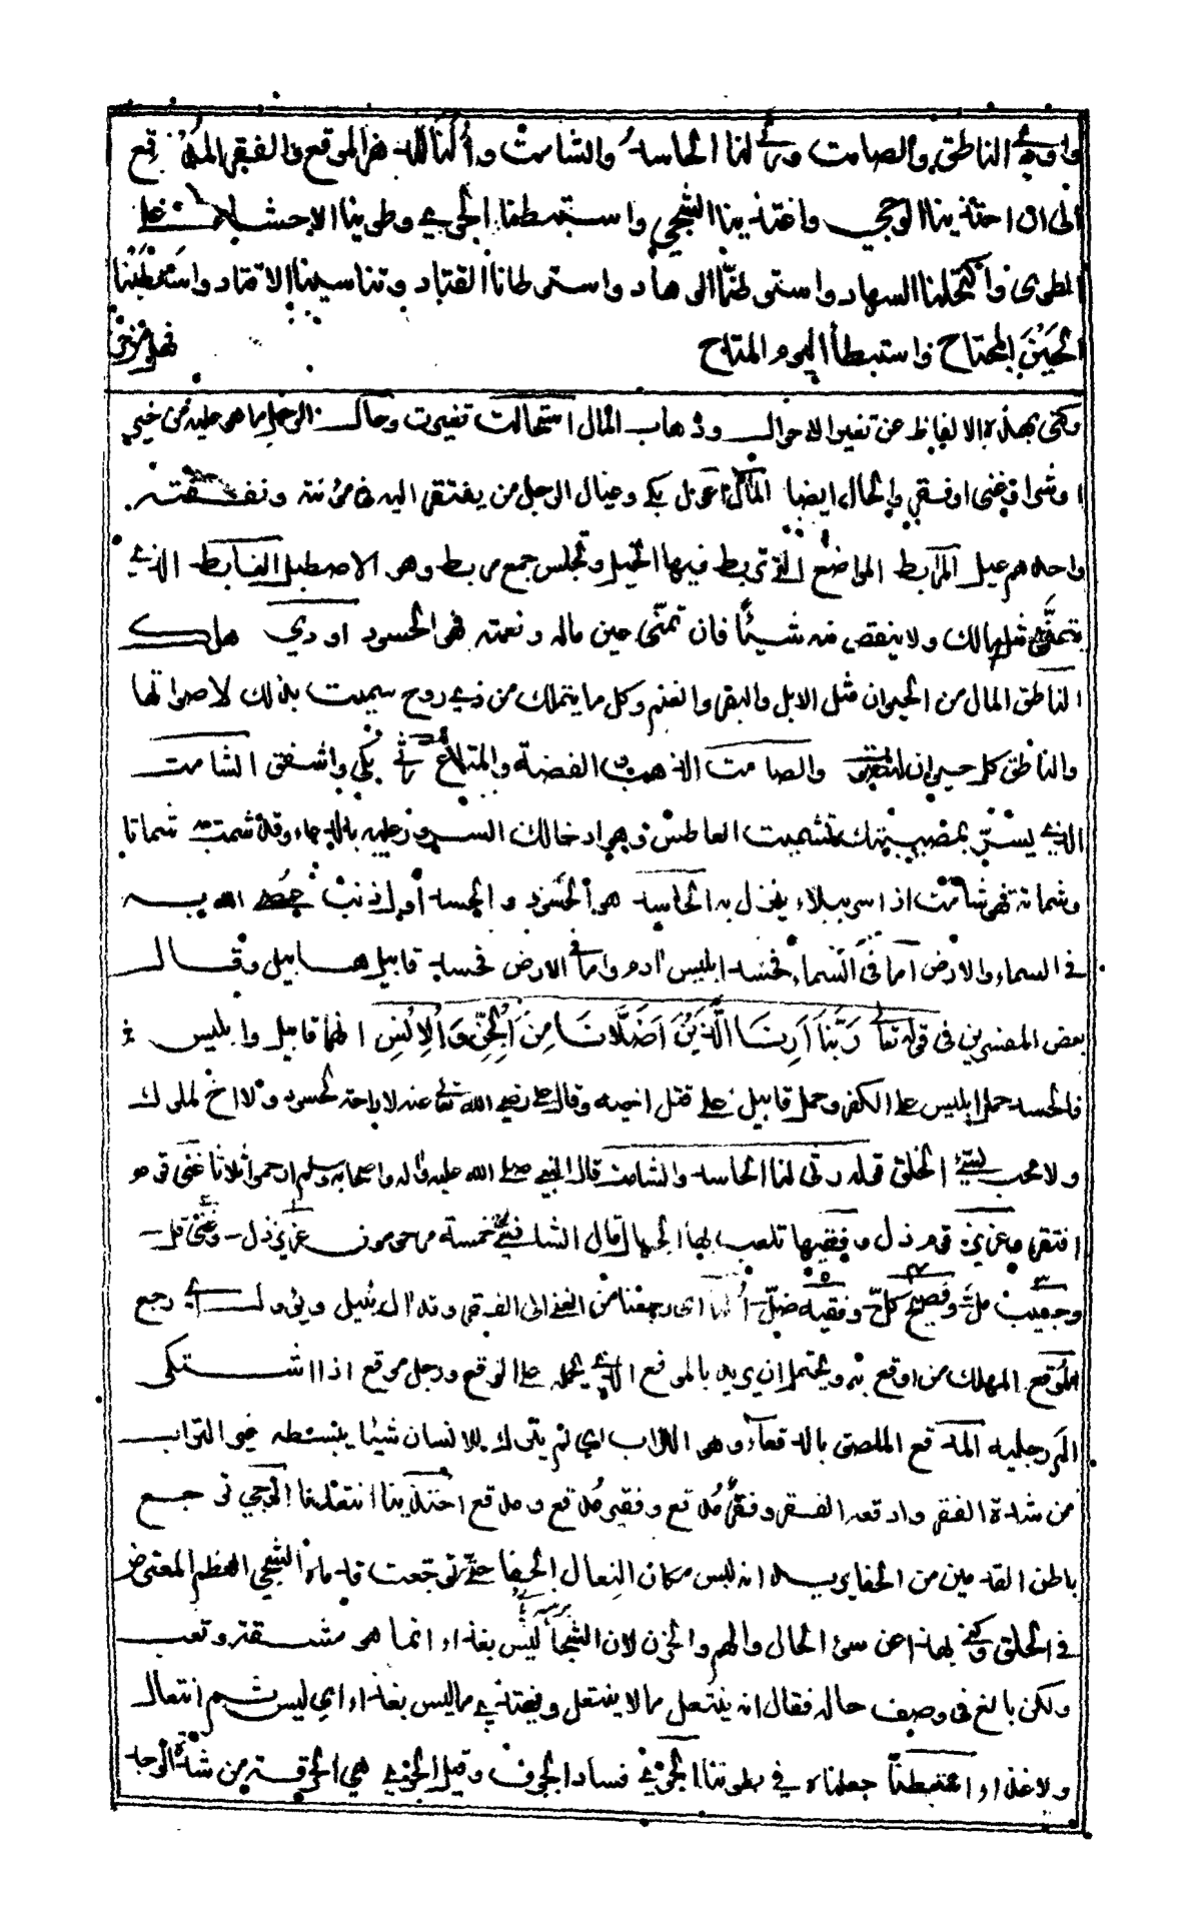 واودى الناطق والصامت ورثى لنا الحاسد والشامت وألنا للدهر الموقع والفقر المدقع
الى ان احتذينا الوجى واغتذينا الشجى واستبطنا الجوى وطوينا الاحشاء على
الطوى واكتحلنا السهاد واستوطنا الوهاد واستوطانا القتاد وتناسينا الاقتاد واستطبنا
الحين المجتاح واستبطأنا اليوم المتاح فهل من حر
وكنى بهذه الالفاظ عن تغير الاحوال وذهاب المال استحالت تغيرت وحال الرجل ما هو عليه من خير
او شر او غنى او فقر والحال ايضا المال اعول بكى وعيال الرجل من يفتقر اليه فى مؤنته ونفقته
واحدهم عيل المرابط المواضع التى تربط فيها الخيل وتحبس جمع مربط وهو الاصطبل الغابط الذى
يتمنى مثل مالك ولا ينقص منه شيئا فان تمنى حين ماله ونعمته فهو الحسود اودى هلك
الناطق المال من الحيوان مثل الابل والبقر والغنم وكل ما يتملك من ذى روح سميت بذلك لاصواتها
والناطق كل حيوان والصامت الذهب والفضة والمتاع رثى بكى واشفق الشامت
الذى يستر بمصيبتك تشميت العاطس وهو ادخالك السرور عليه بالدعاء وقد شمت شماتا
وشماتة فهو شامت اذا سر ببلاء ينزل به الحاسد هو الحسود والحسد اول ذنب عصى الله به
فى السماء والارض اما فى السماء فحسد ابليس ادم واما فى الارض فحسد قابيل هابيل وقال
بعض المفسرين فى قوله تعالى رَبَّنَا أَرِنَا الَّذَيْنِ أَضَلَّانَا مِنَ الْجِنِّ وَالْإِنْسِ انهما قابيل وابليس
فالحسد حمل ابليس على الكفر وحمل قابيل على قتل اخيه وقال على رضى الله تعالى عنه لا راحة لحسود ولا اخ لملوك
ولا محب لسيئ الخلق قوله رثى لنا الحاسد والشامت قال النبى صلى الله عليه واله واصحابه وسلم ارحموا ثلاثا غنى قوم
افتقر وعزيز قوم ذل وفقيها تلعب بها الجهال قال الشافعى خمسة مرحومون عزيز ذل وغنى قل
وحبيب مل وفصيح كل وفقيه ضل ألنا اى رجعنا من الغنى الى الفقر وقد ال يئيل رجع
الموقع المهلك من اوقع به ويحتمل ان يريد بالموقع الذى يحمله على الوقع ورجل موقع اذا اشتكى
الم رجليه المدقع الملصق بالدقعاء وهو التراب اى لم يترك للانسان شيئا يبسطه غير التراب
من شدة الفقر وادقعه الفقر وفقر مدقع وفقير مدقع ومدقع احتذينا انتعلنا الوجى توجع
باطن القدمين من الحفا يريد انه لبس مكان النعال الحفا حتى توجعت قدماه الشجى العظم المعترض
فى الحلق وكنى بهذا عن سوء الحال والهم والحزن لان الشجا ليس بغذاء انما هو مشقة وتعب
ولكن بالغ فى وصف حاله فقال انه ينتعل مما لا ينتعل ويغتذى مما ليس بغذاء اى ليس ثم انتعال
ولا غذاء استبطنا جعلناه فى بطوننا الجوى فساد الجوف وقيل الجوى هى الحرقة من شدة الوجد